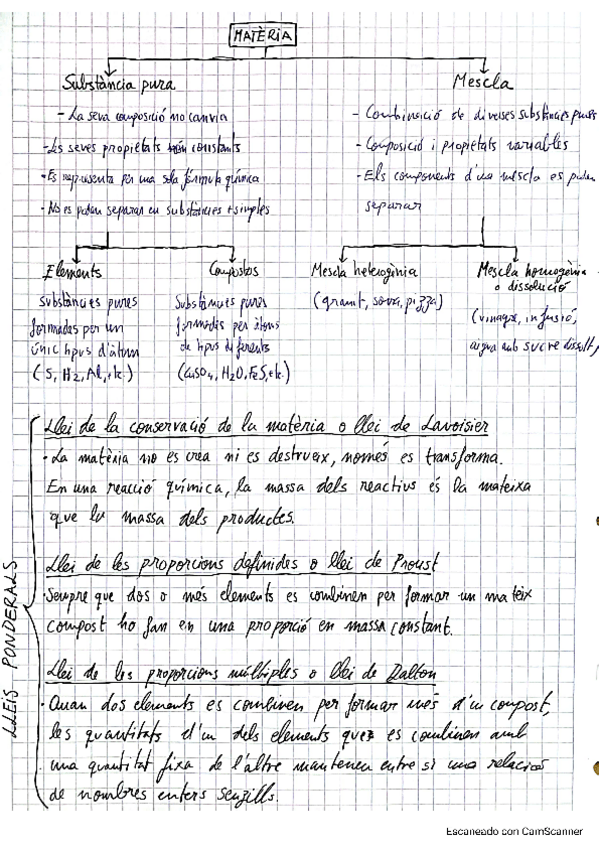 MATÈRIA
Substància pura
- La seva composició no canvia
- Les seves propietats són constants
- Es representa per una sola fórmula química
- No es poden separar en substàncies + simples
Mescla
- Combinació de diverses substàncies pures
- Composició i propietats variables
- Els components d'una mescla es poden
separar
Elements
Substàncies pures
formades per un
únic tipus d'àtom
(S, H2, Al, etc.)
Compostos
Substàncies pures
formades per àtoms
de tipus diferents
(CuSO4, H2O, FeS, etc.)
Mescla heterogènia
(granit, sorra, pizza)
Mescla homogènia
o dissolució
(vinagre, infusió,
aigua amb sucre dissolt,
LLEIS PONDERALS
Llei de la conservació de la matèria o llei de Lavoisier
· La matèria no es crea ni es destrueix, només es transforma.
En una reacció química, la massa dels reactius és la mateixa
que la massa dels productes.
Llei de les proporcions definides o llei de Proust
· Sempre que dos o més elements es combinen per formar un mateix
compost ho fan en una proporció en massa constant.
Llei de les proporcions múltiples o llei de Dalton
· Quan dos elements es combinen per formar més d'un compost,
les quantitats d'un dels elements que es combinen amb
una quantitat fixa de l'altre mantenen entre si una relació
de nombres enters senzills.
Escaneado con CamScanner